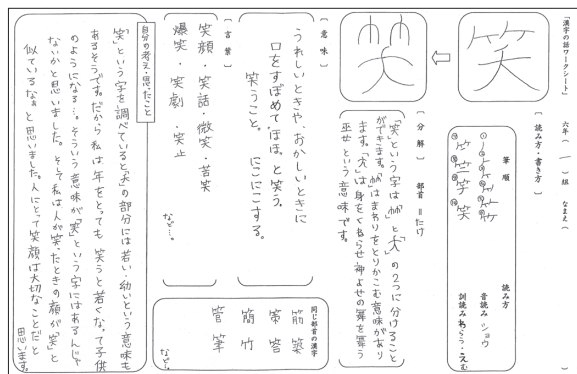 「漢字の話ワークシート」 六年（ 一 ）組 なまえ（ ）
笑
〔読み方・書き方〕
筆順
読み方
音読み ショウ
訓読み わらう・えむ
〔分解〕 部首＝たけ
「笑」という字は「竹」と「夭」の2つに分けること
ができます。「竹」はまわりをとりかこむ意味があり
ます。「夭」は身をくねらせ神よせの舞を舞う
巫女という意味です。
〔意味〕
うれしいときや、おかしいときに
口をすぼめて「ほほ」と笑う。
笑うこと。 にこにこする。
〔言葉〕
笑顔・笑話・微笑・苦笑
爆笑・笑劇・笑止
など…。
同じ部首の漢字
筋 築
策 答
簡 竹
管 筆
など…。
自分の考え・思ったこと
「笑」という字を調べていると「夭」の部分には若い・幼いという意味も
あるそうです。だから私は年をとっても笑うと若くなって子供
のようになる…。そういう意味が「笑」という字にはあるんじゃ
ないかと思いました。そして私は人が笑ったときの顔が「笑」と
似ているなぁと思いました。人にとって笑顔は大切なことだと
思います。